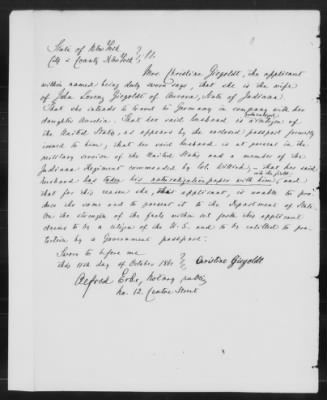 State of New York
City & County New York } S.S.
Mrs. Christine Giegoldt, the applicant
within named being duly sworn says, that she is the wife
of John Lorenz Giegoldt of Aurora, State of Indiana
That she intends to travel to Germany in company with her
daughter Amelia. That her said husband is a naturalized citizen of
the United States, as appears by the enclosed passport formerly
issued to him; that her said husband is at present in the
military service of the United States and a member of the
Indiana Regiment commanded by Col. Willich; that her said
husband has taken his naturalization paper with him, into the field, and
that for this reason she, this applicant, is unable to pro-
duce the same and to present it to the Department of State.
On the strength of the facts within set forth this applicant
claims to be a citizen of the U.S. and to be entitled to pro-
tection by a Government passport.
Sworn to before me
this 11th day of October 1861 } Christine Giegoldt
Alfred Erbe, Notary public
No. 12. Centre Street